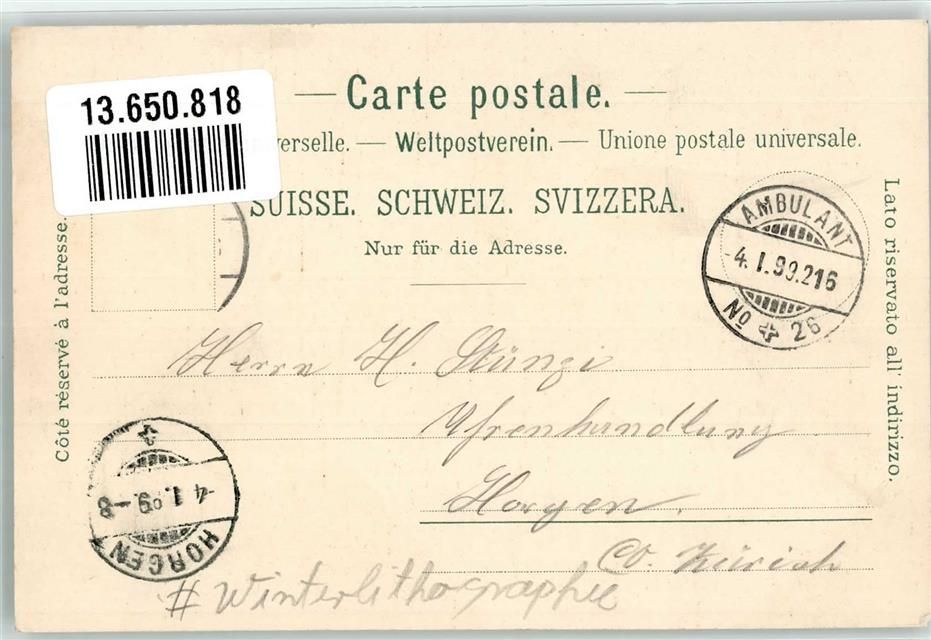 13.650.818
Carte postale.
verselle. — Weltpostverein. — Unione postale universale.
SUISSE. SCHWEIZ. SVIZZERA.
Nur für die Adresse.
Côté réservé à l'adresse.
Lato riservato all' indirizzo.
AMBULANT
-4.I.99.216
No 26
Herrn H. Stünzi
Uhrenhandlung
Horgen.
Ct. Zürich
HORGEN
-4.I.99.-8
#Winterlithographie